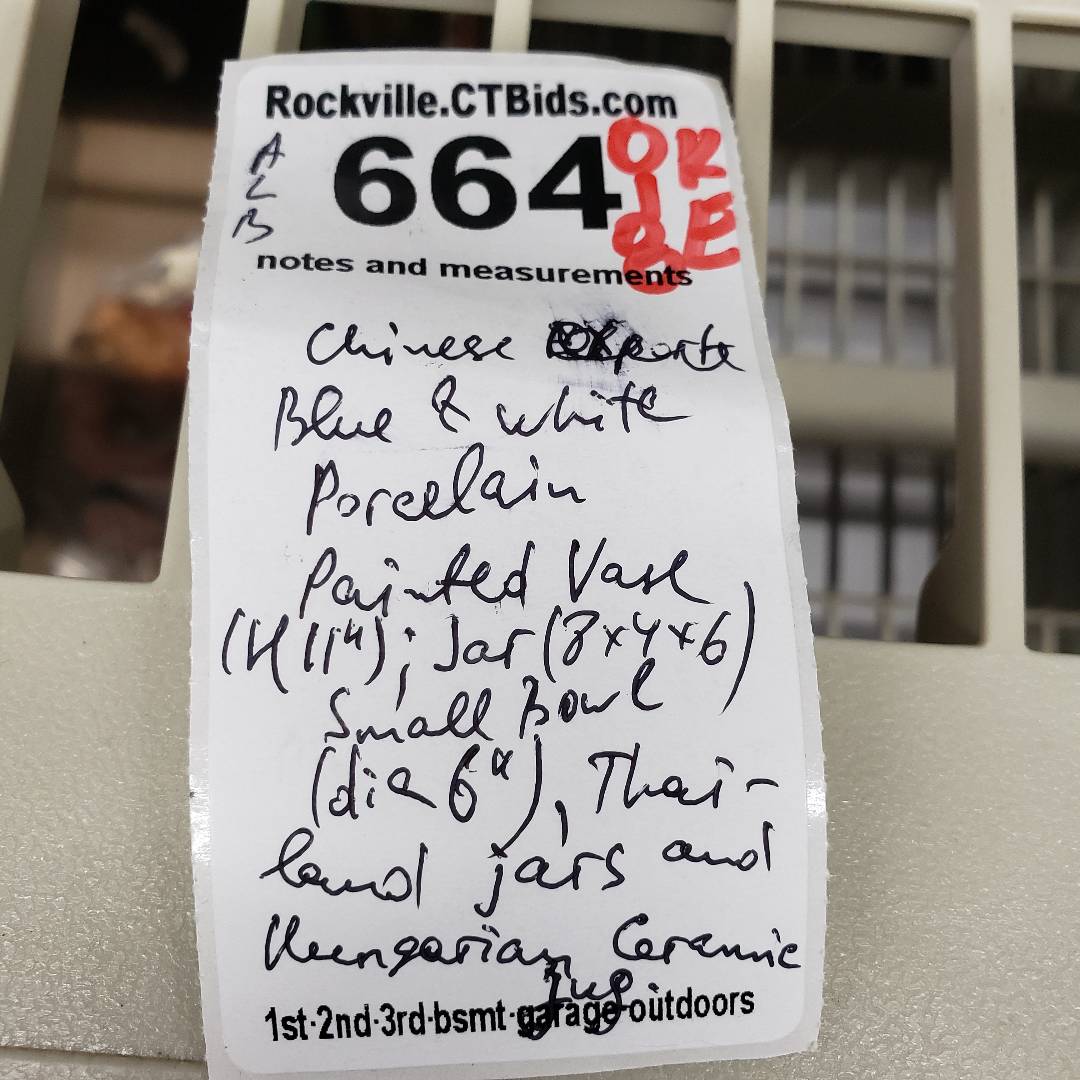 Rockville.CTBids.com
A
L
B
664
notes and measurements
Chinese Exporte
Blue & white
Porcelain
Painted Vase
(H 11"); Jar (8x4x6)
Small Bowl
(dia 6"), Thai-
land jars and
Hungarian Ceramic
jug
1st·2nd·3rd·bsmt·garage·outdoors